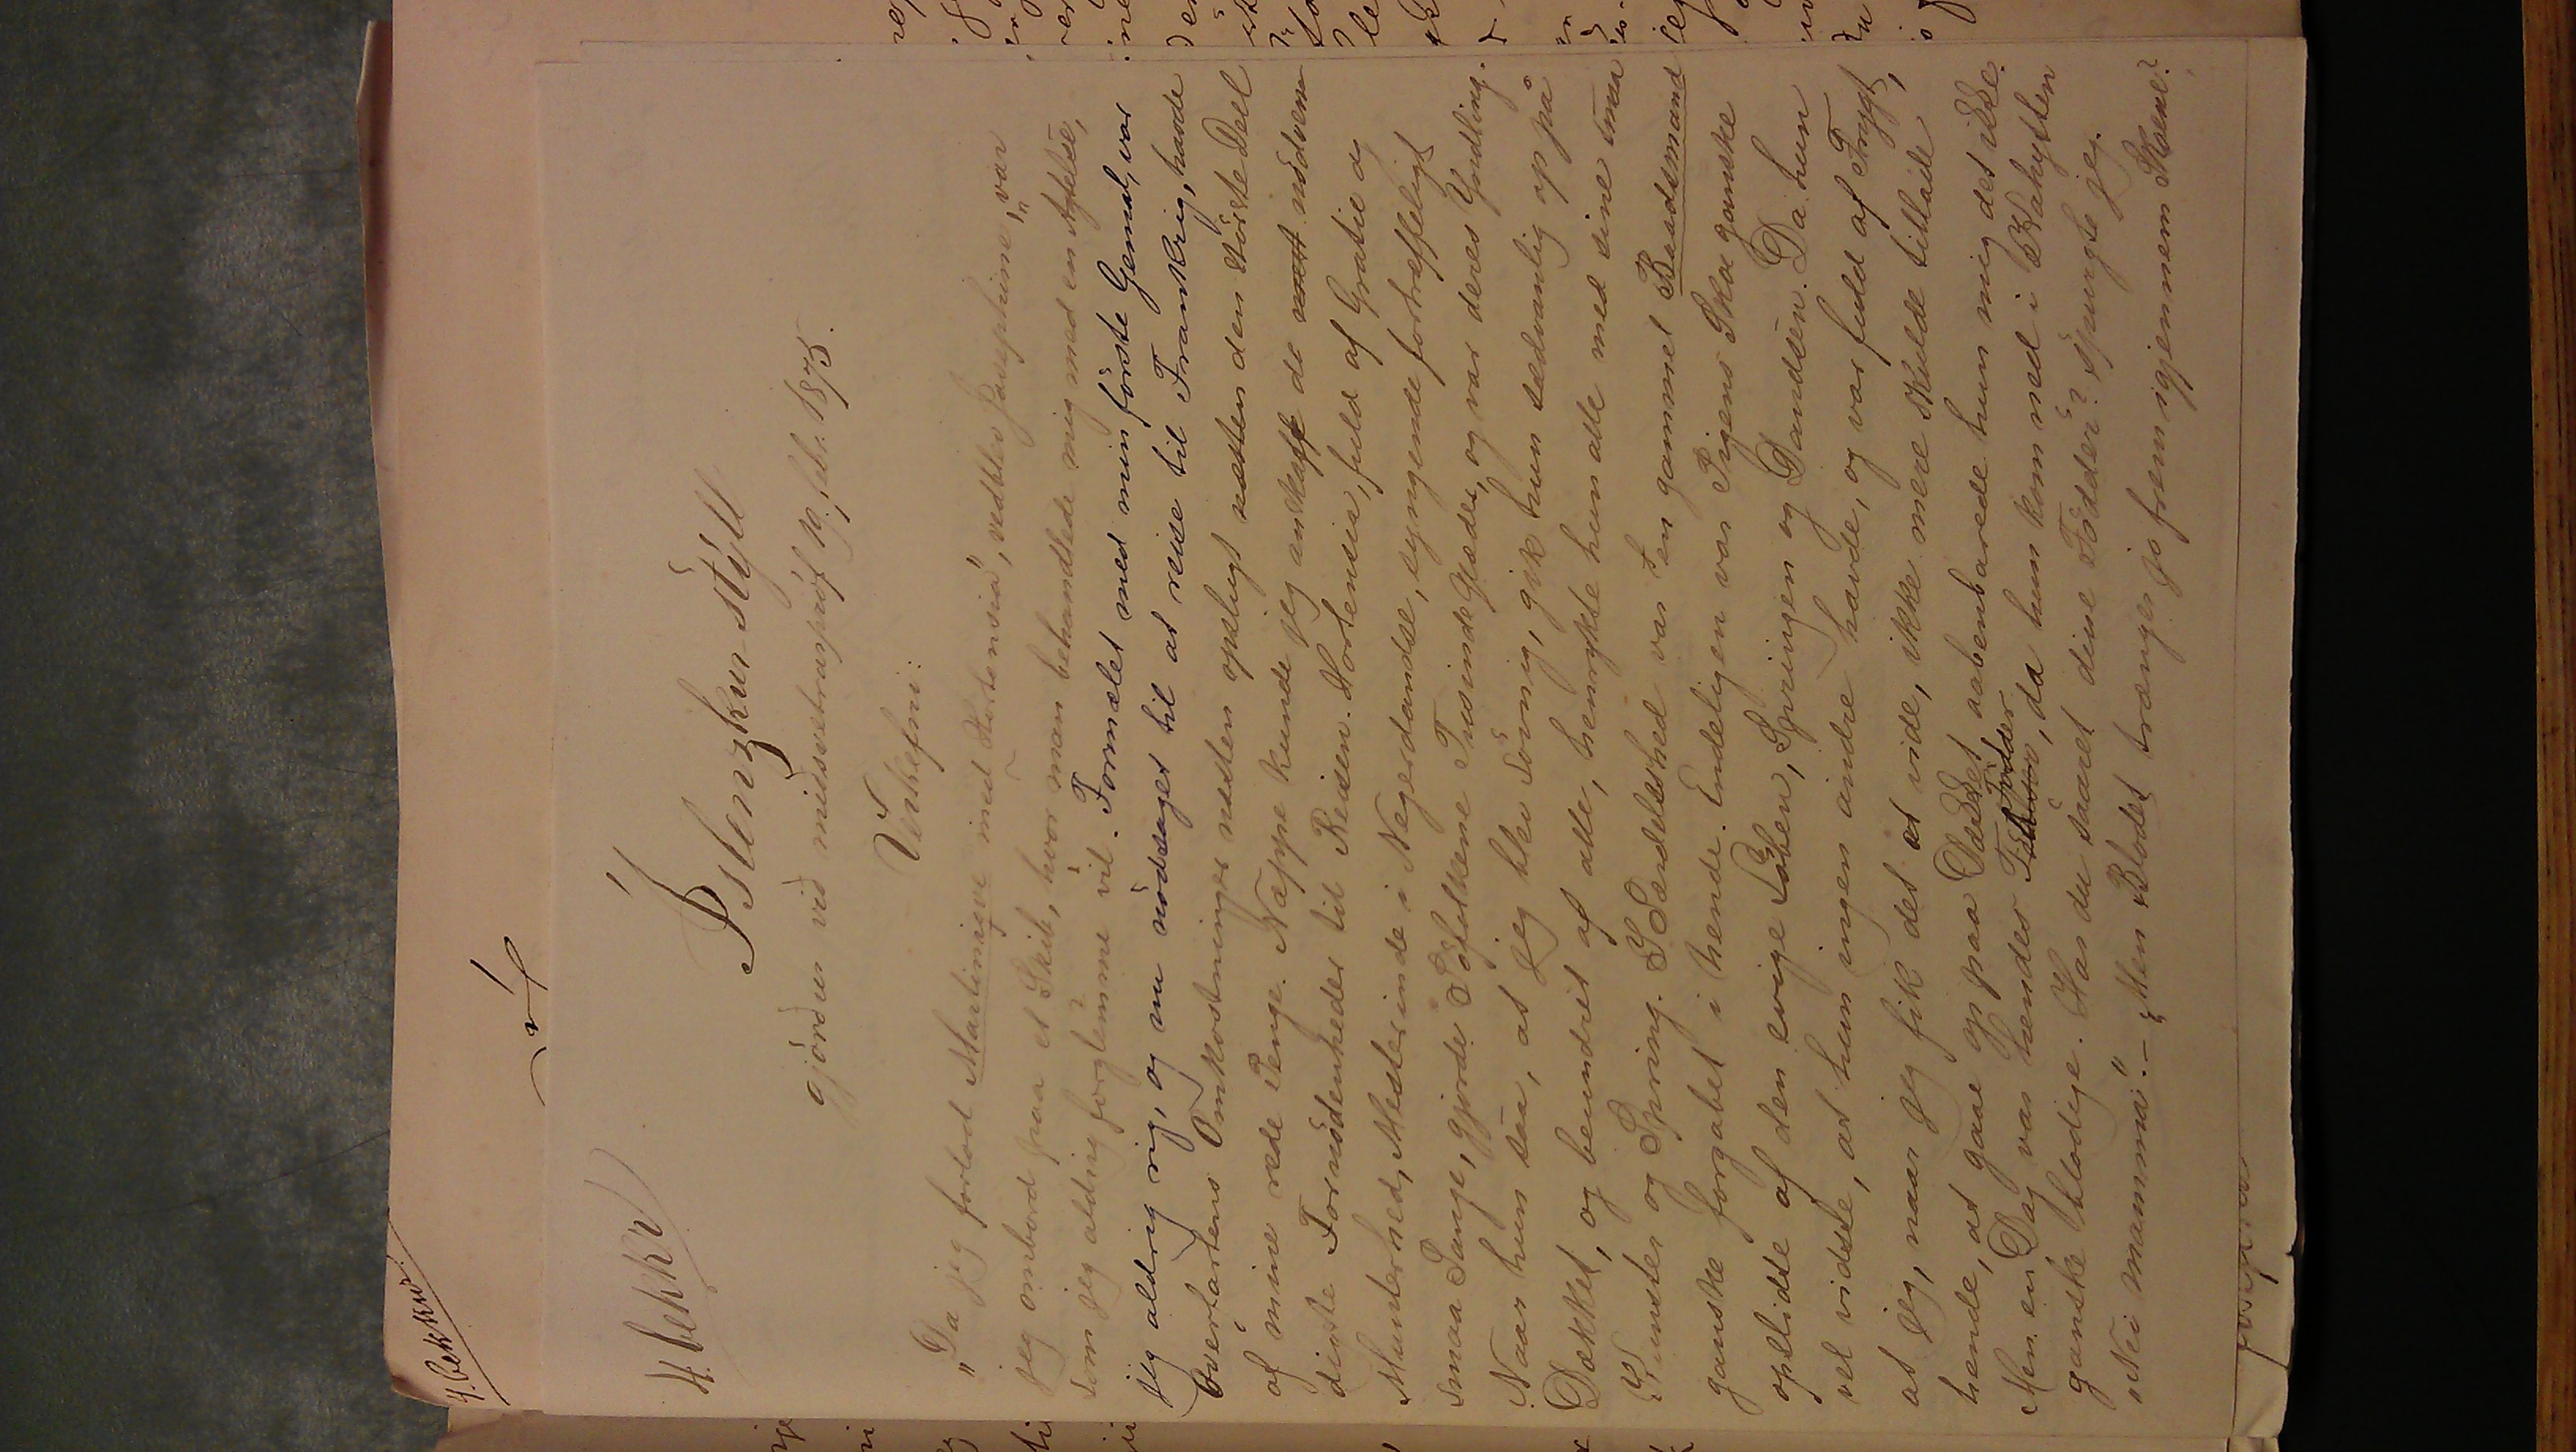 4. bekkr
Íslenzkur stýll
gjörður við miðsvetrarpróf 19. febr. 1875.
Verkefni:
„Da jeg forlod Martinique med Hortensia“, vedblev Josephine, „var
jeg ombord paa et Skib, hvor man behandlede mig med en
som jeg aldrig forglemme vil. Formælet med min förste Gemal, var
jeg aldrig rig, og nu nödsaget til at reise til Frankrig, havde
Overfartens Omkostninger næsten opslugt næsten den störste Deel
af mine rede Penge. Nappe kunde jeg anskaffe de nödven
digste Fornödenheder til Reisen. Hortensia, fuld af Gratie og
Munterhed, Mesterinde i Negerdandse, syngende fortræffeligt
smaa Sange, gjorde Söfolkene Tusinde Glæder, og var deres Yndling.
Naar hun saa, at jeg blev sövnig, gik hun sædvanlig op på
Dækket, og beundret af alle, henrykte hun alle med sine smaa
Kunster og Spring. I Særdeleshed var en gammel Baadsmand
ganske forgabet i hende. Endeligen var Pigens Skoe ganske
opslidte af den evige Löben, Springen og Dandsen. Da hun
vel vidste, at hun ingen andre havde, og var fuld af Frygt,
at jeg, naar jeg fik det at vide, ikke mere skulde tillade
hende, at gaae op paa Dækket, aabenbarede hun mig det ikke.
Men en Dag var hendes Födder, da hun kom ned i Kahytten
ganske blodige. Har du saaret dine Födder? spurgte jeg.
„Nei mamma“. – „Men Blodet trænger jo frem igjennem Skoene?
4. bekkur